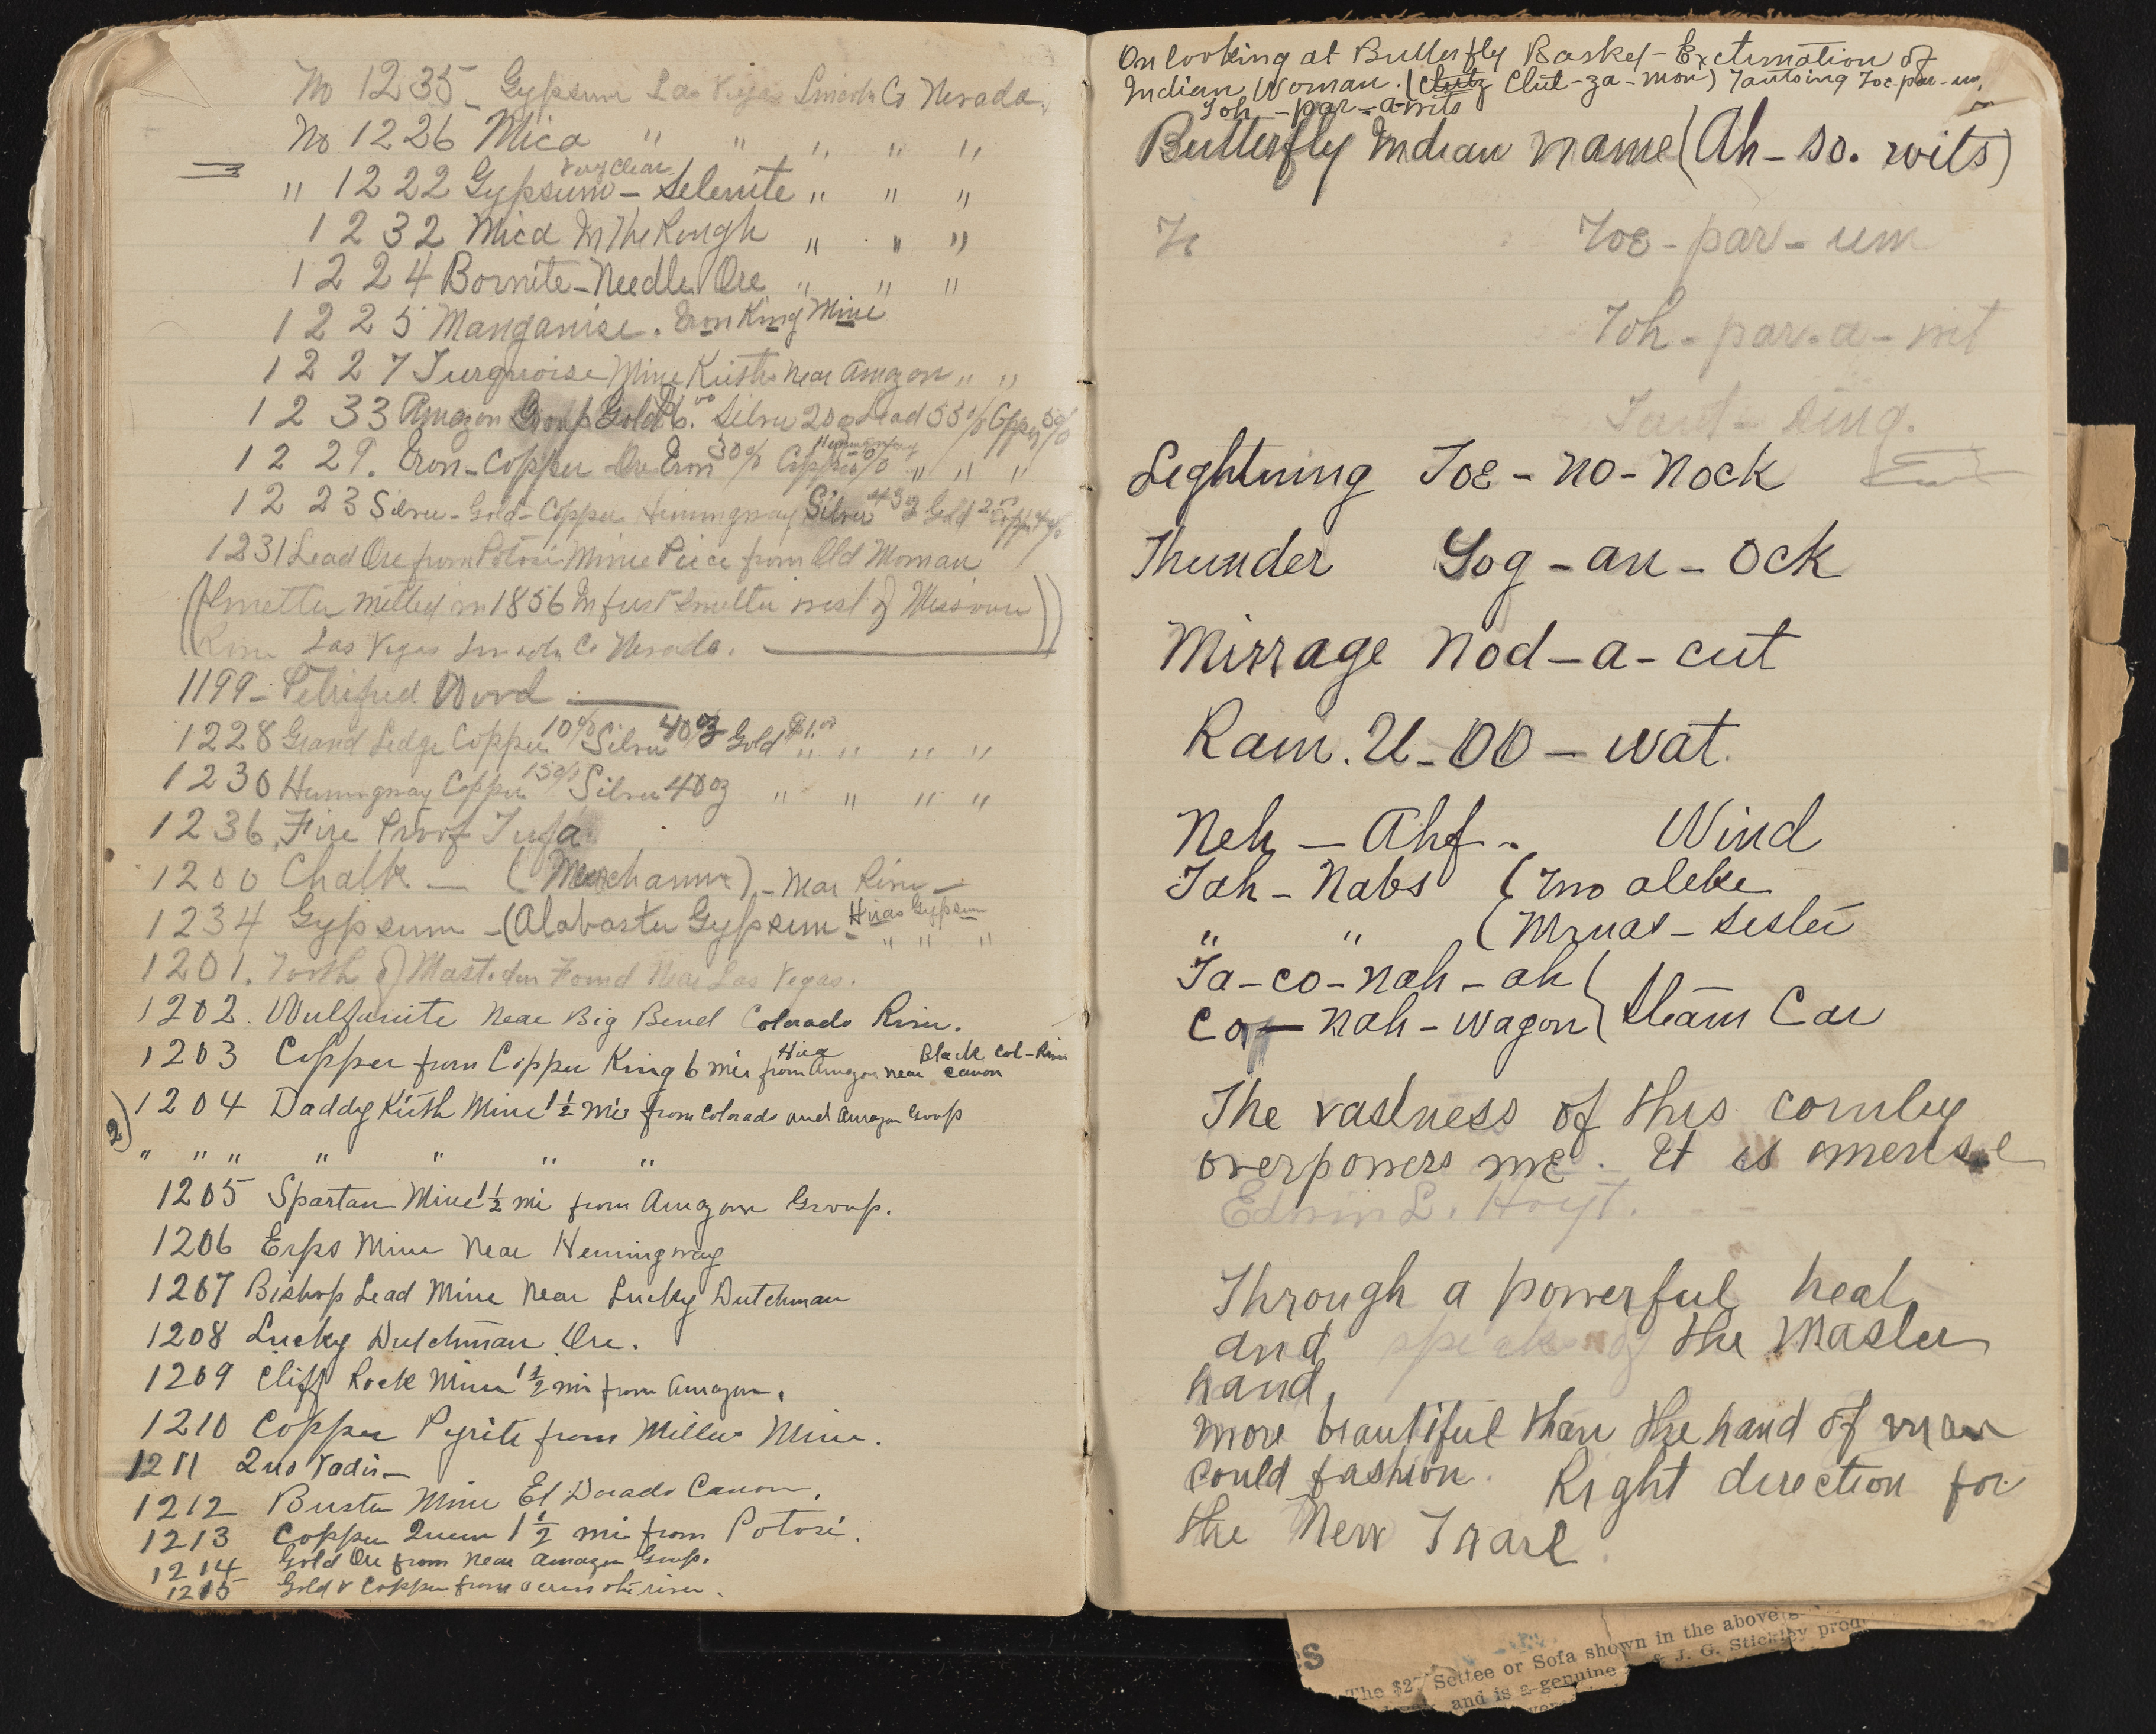 No 1235 - Gypsum Las Vegas Lincoln Co Nevada.
No 1226 Mica " " " " "
very clear
" 1222 Gypsum - Selenite " " "
1232 Mica In The Rough " " "
1224 Bornite - Needle Ore " " "
1225 Manganise. Iron King Mine
1227 Turquoise Mine near Amazon " "
1233 Amazon Group Gold 6.00 Silver 20 oz Lead 55% Copper 5%
1229. Iron - Copper Ore Iron 30% Copper % " " "
1223 Silver - Gold - Copper Hemingway Silver Gold
1231 Lead Ore from Potosi Mine Piece from Old Mormon
((Smelter melted in 1856 In first smelter west of Missouri
River Las Vegas Lincoln Co Nevada. ))
1199 - Petrified Wood
1228 Grand Ledge Copper 10% Silver 40 oz Gold $1.00 " " " "
1230 Hemingway Copper 15% Silver 40 oz " " " "
1236 Fire Proof Tufa
1200 Chalk - ( ) - near River -
1234 Gypsum - (Alabaster Gypsum - Gypsum
" " "
1201. Tooth of Mastoden Found Near Las Vegas.
1202. Wulfanite near Big Bend Colorado River.
1203 Copper from Copper King 6 mis from Amazon near Black Canon Col - River
2) 1204 Daddy Mine 1 1/2 mis from Colorado and Amazon Group
" " " " " " "
1205 Spartan Mine 1 1/2 mi from Amazon Group.
1206 Erps Mine near Hemingway
1207 Bishop Lead Mine near Lucky Dutchman
1208 Lucky Dutchman Ore.
1209 Cliff Rock Mine 1 1/2 mi from Amazon.
1210 Copper Pyrite from Millers Mine.
1211 Quo Vadis -
1212 Buster Mine El Dorado Canon.
1213 Copper Queen 1 1/2 mi from Potosi.
1214 Gold Ore from near Amazon Group.
1215 Gold & Copper from across the river.
On looking at Butterfly Basket - Exclimation of
Indian Woman. (Clutz Clut-za-mon) Tantsing Toe-par-um
Toh-par-a-wits
Butterfly Indian name (Ah-so. wits)
To Toe-par-um
Toh-par-a-wit
Taut-sing.
Leghtning Toe-no-nock
Thunder Yog-an-ock
Mirrage Nod-a-cut
Rain. U-oo-wat.
Neh - Ahf - Wind
Tah-Nabs (Two aleke
" " ( - sister
Ta-co-nah-ah (
Co-nah-wagon { Steam Car
The vastness of this country
overpowers me. It is omense
Edwin L. Hoyt.
Through a powerful heat
and speaks of the Master
hand
more beautiful than the hand of man
could fashion. Right direction for
the New Trail.
S
The $27 Settee or Sofa shown in the above
& J. G. Stickley
and is a genuine